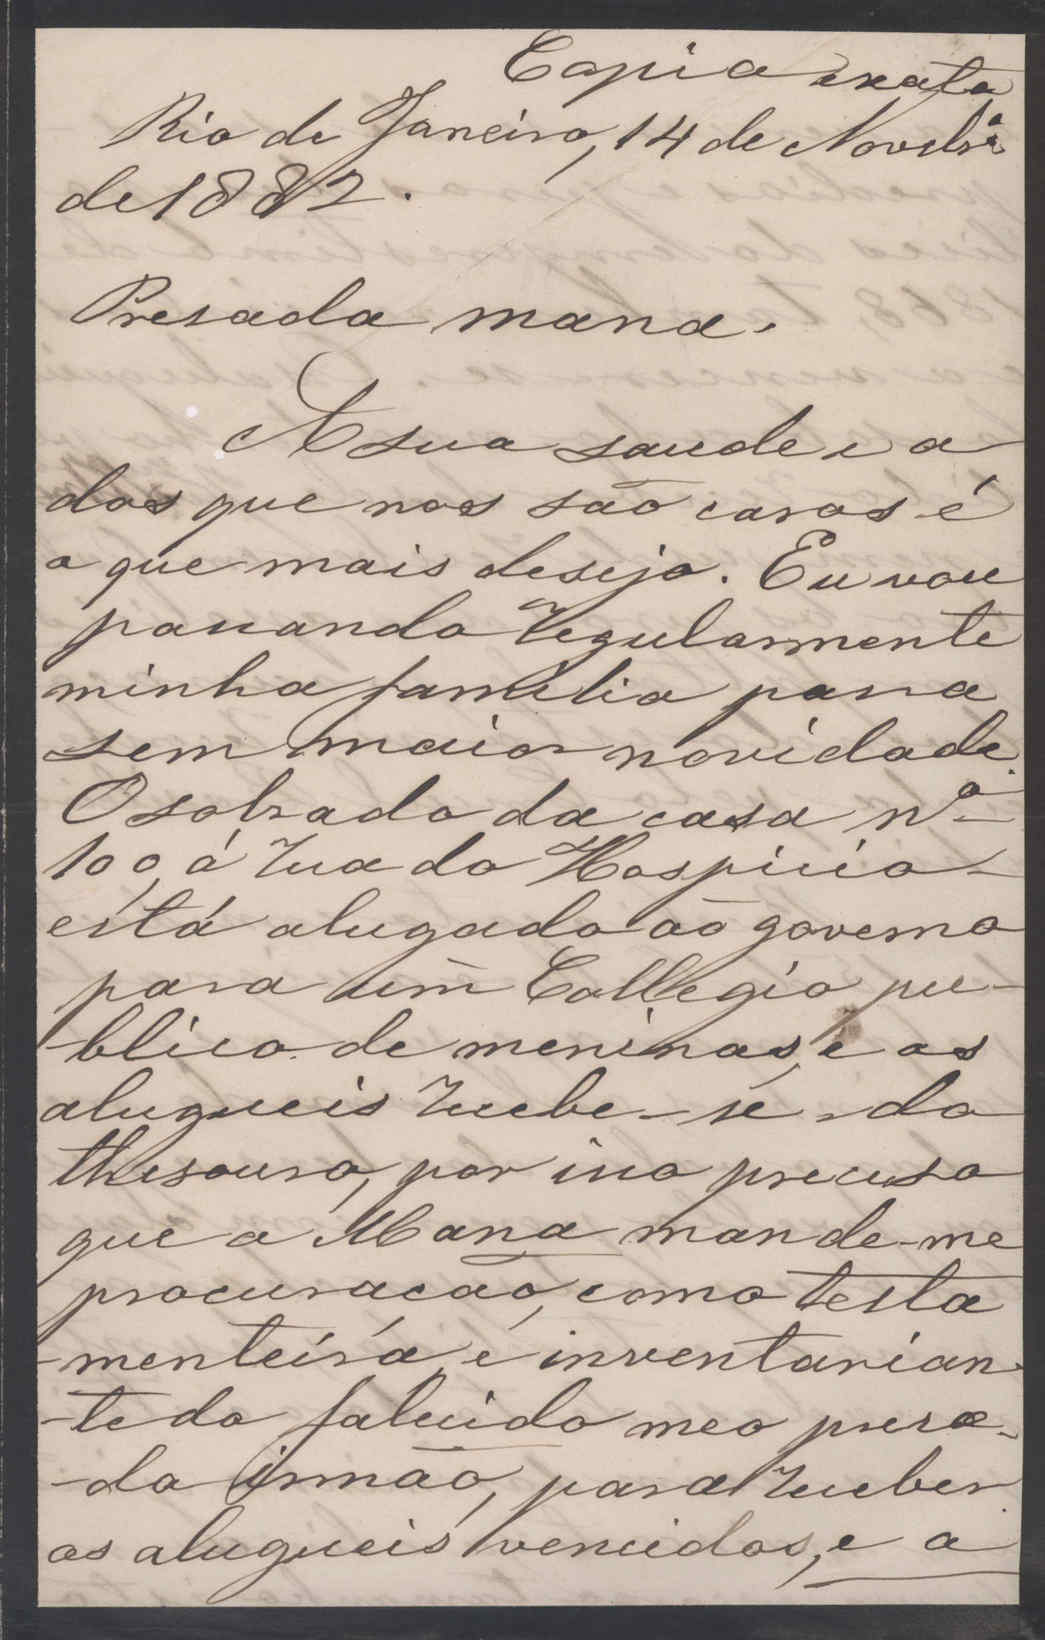 Copia exata
Rio de Janeiro, 14 de Novebrº
de 1882.
Presada mana.
A sua saude e a
dos que nos são caros é
o que mais desejo. Eu vou
passando regularmente
minha familia passa
sem maior novidade.
O sobrado da casa nº
100, á rua do Hospicio
está alugado ao governo
para um Collegio pu-
-blico de meninas, e os
alugueis recebe-se do
thesouro, por isso preciso
que a Mana mande-me
procuracão, como testa
-menteira, e inventarian
-te do falecido meo presa-
-do irmão, para receber
os alugueis vencidos, e a